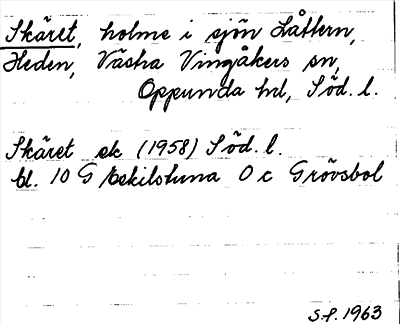 Skäret, holme i sjön Låttern,
Heden, Västra Vingåkers sn,
Oppunda hd, Söd. l.
Skäret ek (1958) Söd. l.
bl. 10 G Eskilstuna O c Grövsbol
S.P. 1963